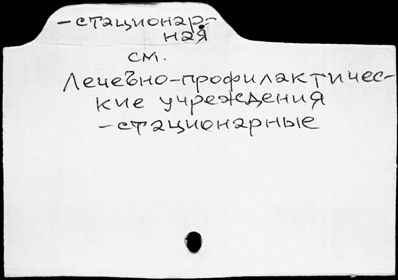 -стационар-
ная
см.
Лечебно-профилактичес-
кие учреждения
-стационарные